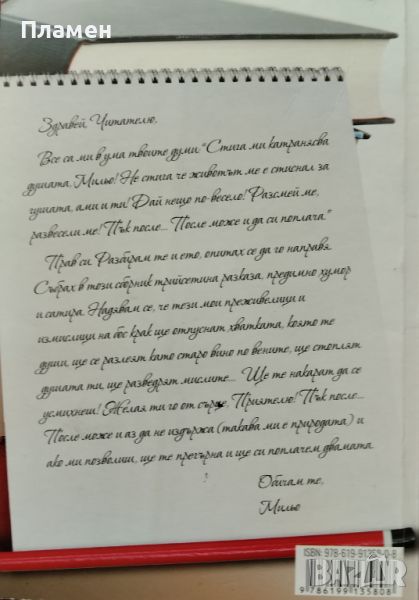 Пламен
Здравей, Читателю,
Все са ми в ума твоите думи "Стига ми катранясва
душата, Мильо! Не стига че животът ме е стиснал за
гушата, ами и ти! Дай нещо по-весело! Разсмей ме,
развесели ме! Пък после... После може и да си поплача."
Прав си. Разбирам те и ето, опитах се да го направя.
Събрах в този сборник трийсетина разказа, предимно хумор
и сатира. Надявам се, че тези мои преживелици и
измислици на бос крак ще отпуснат хватката, която те
души, ще се разлеят като старо вино по вените, ще стоплят
душата ти, ще разведрят мислите... Ще те накарат да се
усмихнеш! Желая ти го от сърце, Приятелю! Пък после...
После може и аз да не издържа (такава ми е природата) и
ако ми позволиш, ще те прегърна и ще си поплачем двамата.
Обичам те,
Мильо
ISBN: 978-619-91358-0-8
BAZAR
9786199135808